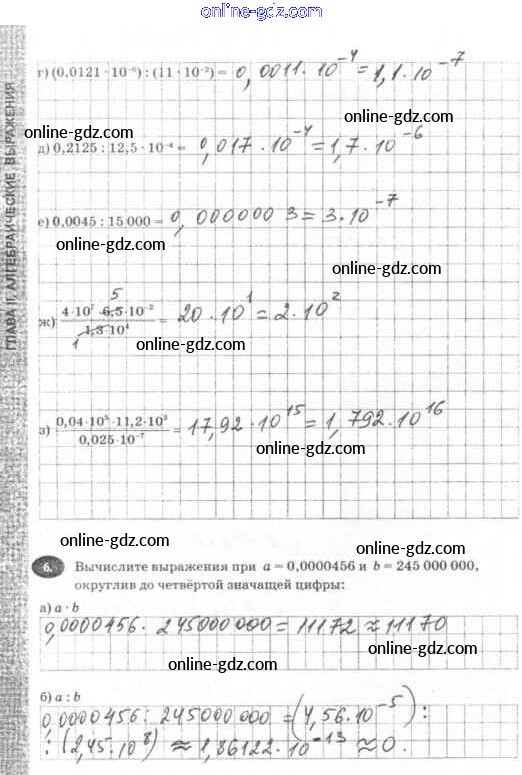 online-gdz.com
ГЛАВА II. АЛГЕБРАИЧЕСКИЕ ВЫРАЖЕНИЯ
г) (0,0121 · 10⁻⁶) : (11 · 10⁻²) = 0,0011 · 10⁻⁴ = 1,1 · 10⁻⁷
online-gdz.com
online-gdz.com
д) 0,2125 : 12,5 · 10⁻⁴ = 0,017 · 10⁻⁴ = 1,7 · 10⁻⁶
online-gdz.com
е) 0,0045 : 15 000 = 0,0000003 = 3 · 10⁻⁷
online-gdz.com
online-gdz.com
5
ж) 4·10⁷ · 6,5·10⁻² / 1,3·10⁴ = 20 · 10¹ = 2 · 10²
1
online-gdz.com
з) 0,04·10⁵ · 11,2·10³ / 0,025·10⁻⁷ = 17,92 · 10¹⁵ = 1,792 · 10¹⁶
online-gdz.com
online-gdz.com
6. Вычислите выражения при a = 0,0000456 и b = 245 000 000,
округлив до четвёртой значащей цифры:
online-gdz.com
а) a · b
0,0000456 · 245000000 = 11172 ≈ 11170
online-gdz.com
online-gdz.com
б) a : b
0,0000456 : 245000 000 = (4,56·10⁻⁵) :
: (2,45·10⁸) ≈ 1,86122 · 10⁻¹³ ≈ 0.
online-gdz.com